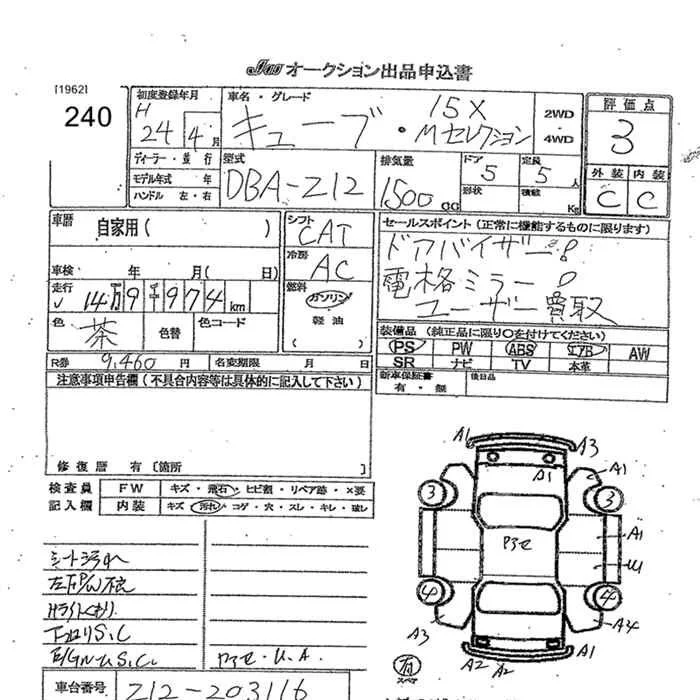 JU オークション出品申込書
[1962]
240
初度登録年月
H 24 4月
車名・グレード
キューブ・15X Mセレクション
2WD
4WD
評価点
3
外装 内装
C C
ディーラー・並行
モデル年式 年
ハンドル 左・右
型式
DBA-Z12
排気量
1500cc
ドア 5
定員 5人
形状
積載 Kg
車歴 自家用( )
車検 年 月( 日)
走行 14万9千974km
色 茶
色替
色コード
シフト CAT
冷房 AC
燃料
ガソリン
軽油
( )
セールスポイント(正常に機能するものに限ります)
ドアバイザー!
電格ミラー!
ユーザー買取
装備品(純正品に限り○を付けてください)
PS PW ABS エアB AW
SR ナビ TV 本革
新車保証書
有・無
後日品
R券 9,460円
名変期限 月 日
注意事項申告欄(不具合内容等は具体的に記入して下さい)
修復歴 有[箇所 ]
検査員
記入欄
FW キズ・飛石・ヒビ割・リペア跡・×要
内装 キズ・汚れ・コゲ・穴・スレ・キレ・破レ
シート汚れ
左FP/W不良
Hライトくもり
下回りS.C
E/GルームS.C
Pアセ・U.A.
車台番号 Z12-203116
A1 A3
A1 A1
3 3
A1
Pアセ
U1
4 4
A3 A34
A2 A2 A1
有
スペア